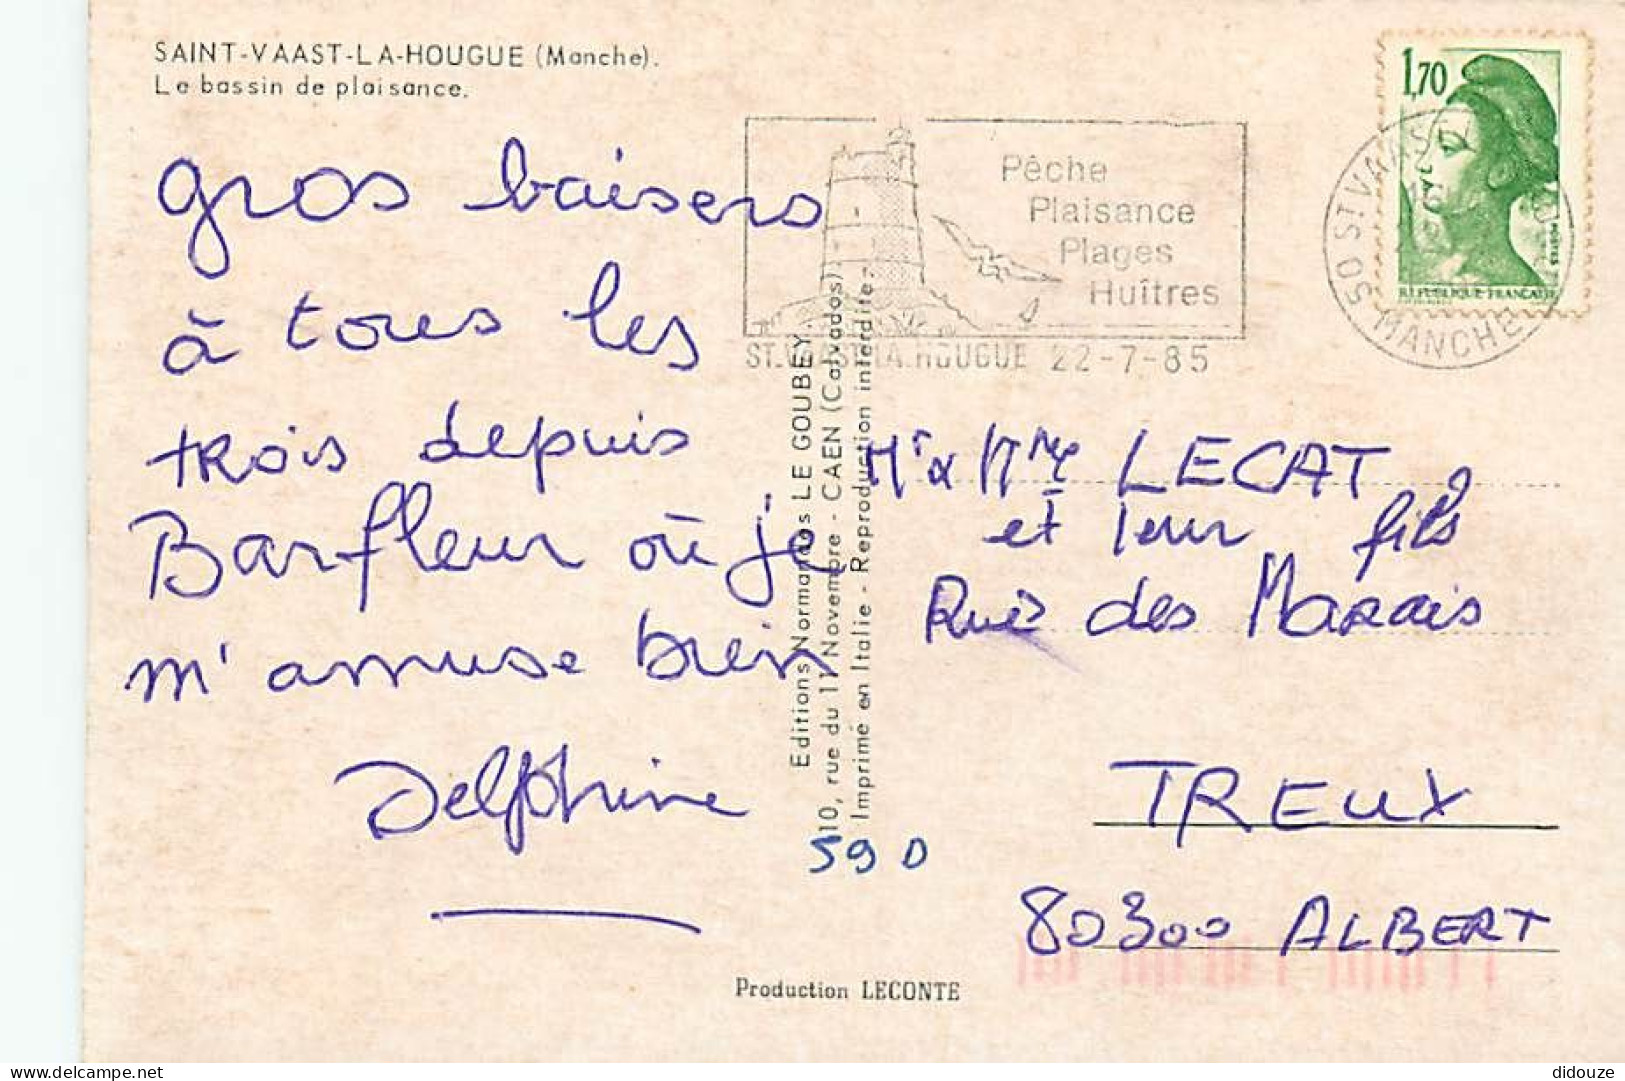 SAINT-VAAST-LA-HOUGUE (Manche).
Le bassin de plaisance.
gros baisers
à tous les
trois depuis
Barfleur où je
m'amuse bien
Delphine
Pêche
Plaisance
Plages
Huîtres
ST.VAAST.LA.HOUGUE 22-7-85
1,70
REPUBLIQUE FRANCAISE
50 MANCHE
Editions Normandes LE GOUBEY.
10, rue du 11 Novembre - CAEN (Calvados)
Imprimé en Italie - Reproduction interdite.
Mr & Mme LECAT
et leur fils
Rue des Marais
TREUX
80300 ALBERT
59 D
Production LECONTE
delcampe.net
didouze